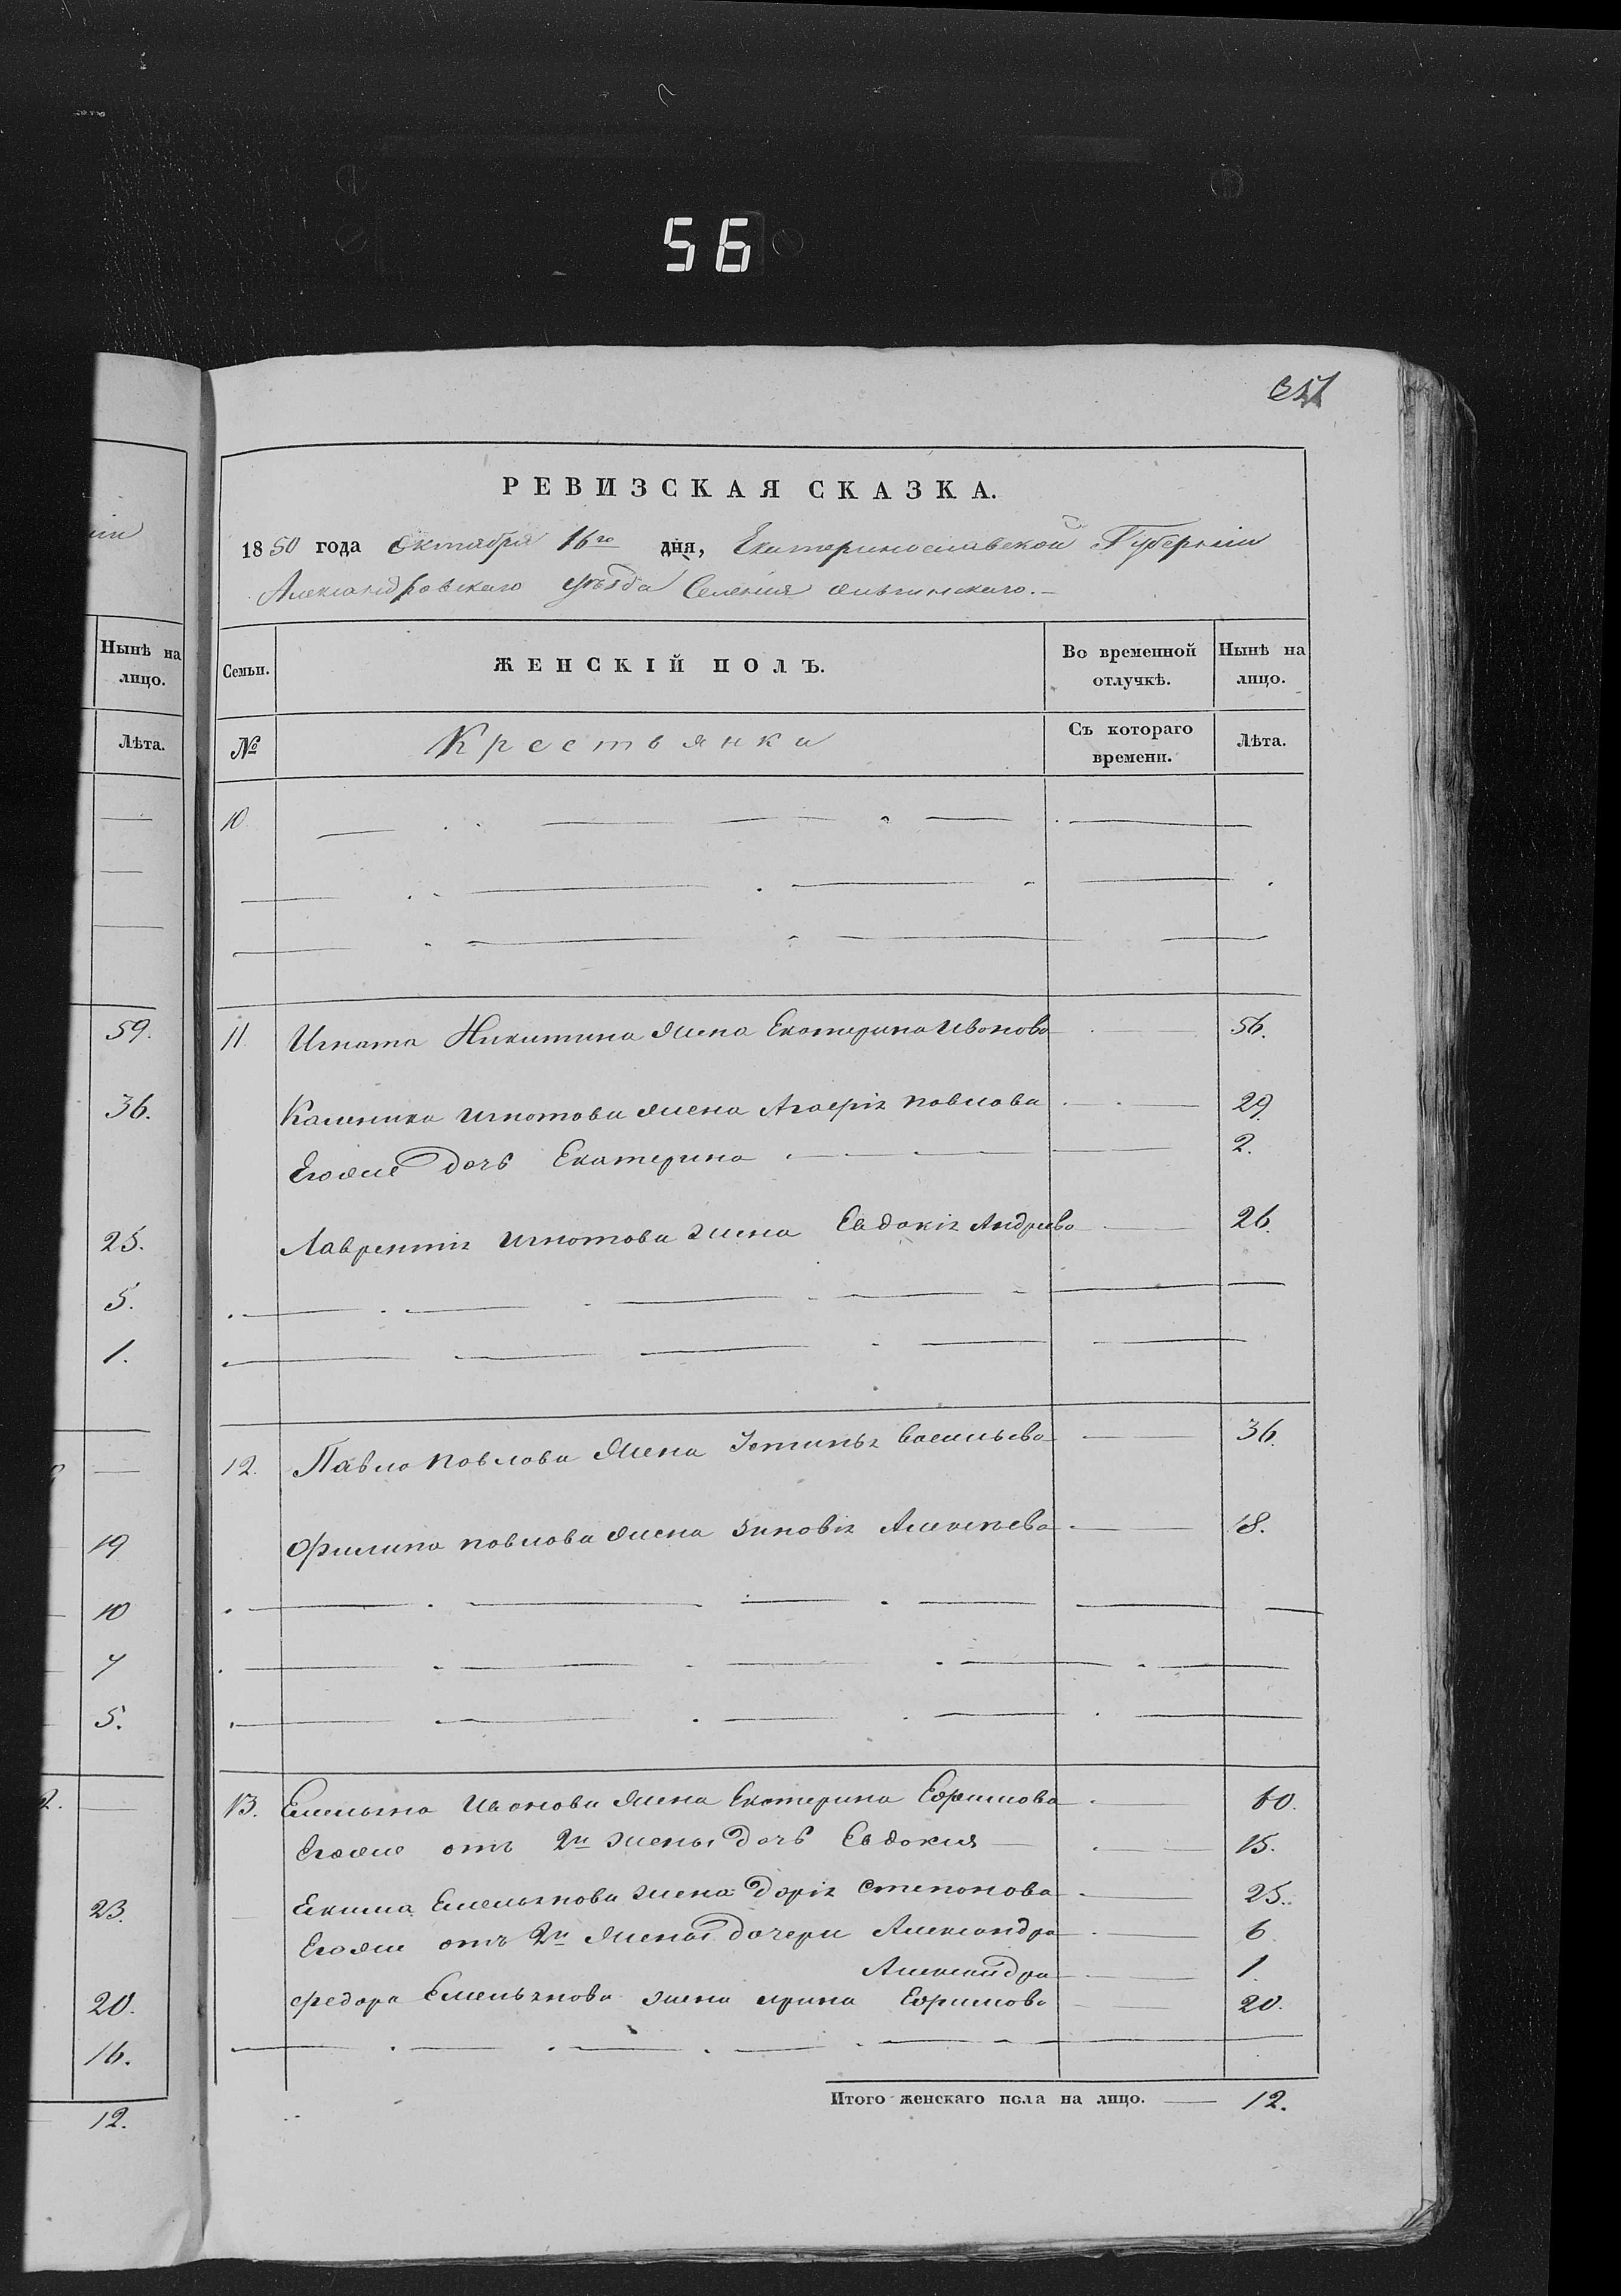 56
РЕВИЗСКАЯ СКАЗКА.
1850 года Октября 16го дня, Екатеринославской Губернiи
Александровскаго уѣзда Селенiя
Нынѣ на лицо.
Лѣта.
59.
36.
25.
5.
1.
19
10
7
5.
23.
20.
16.
12.
Семьи. ЖЕНСКIЙ ПОЛЪ. Во временной отлучкѣ. Нынѣ на лицо.
№ Крестьянки Съ котораго времени. Лѣта.
10
11 Игната Никитина жена Екатерина Иванова 56.
Каленика Игнатова жена Агафiя Павлова 29
Егоже дочь Екатерина 2.
Лаврентiя Игнатова жена Евдокiя Андреева 26
12. Павла Павлова жена Устинья Васильева 36.
Филипа Павлова жена Зиновiя Алексѣева 18.
13. Емельяна Иванова жена Екатерина Ефимова 60.
Егоже отъ 2й жены дочь Евдокия 15.
Екима Емельянова жена Дарiя Степанова 25.
Егоже отъ 2й жены дочери Александра 6
Александра 1.
Федора Емельянова жена Ирина Ефимова 20.
Итого женскаго пола на лицо. 12.